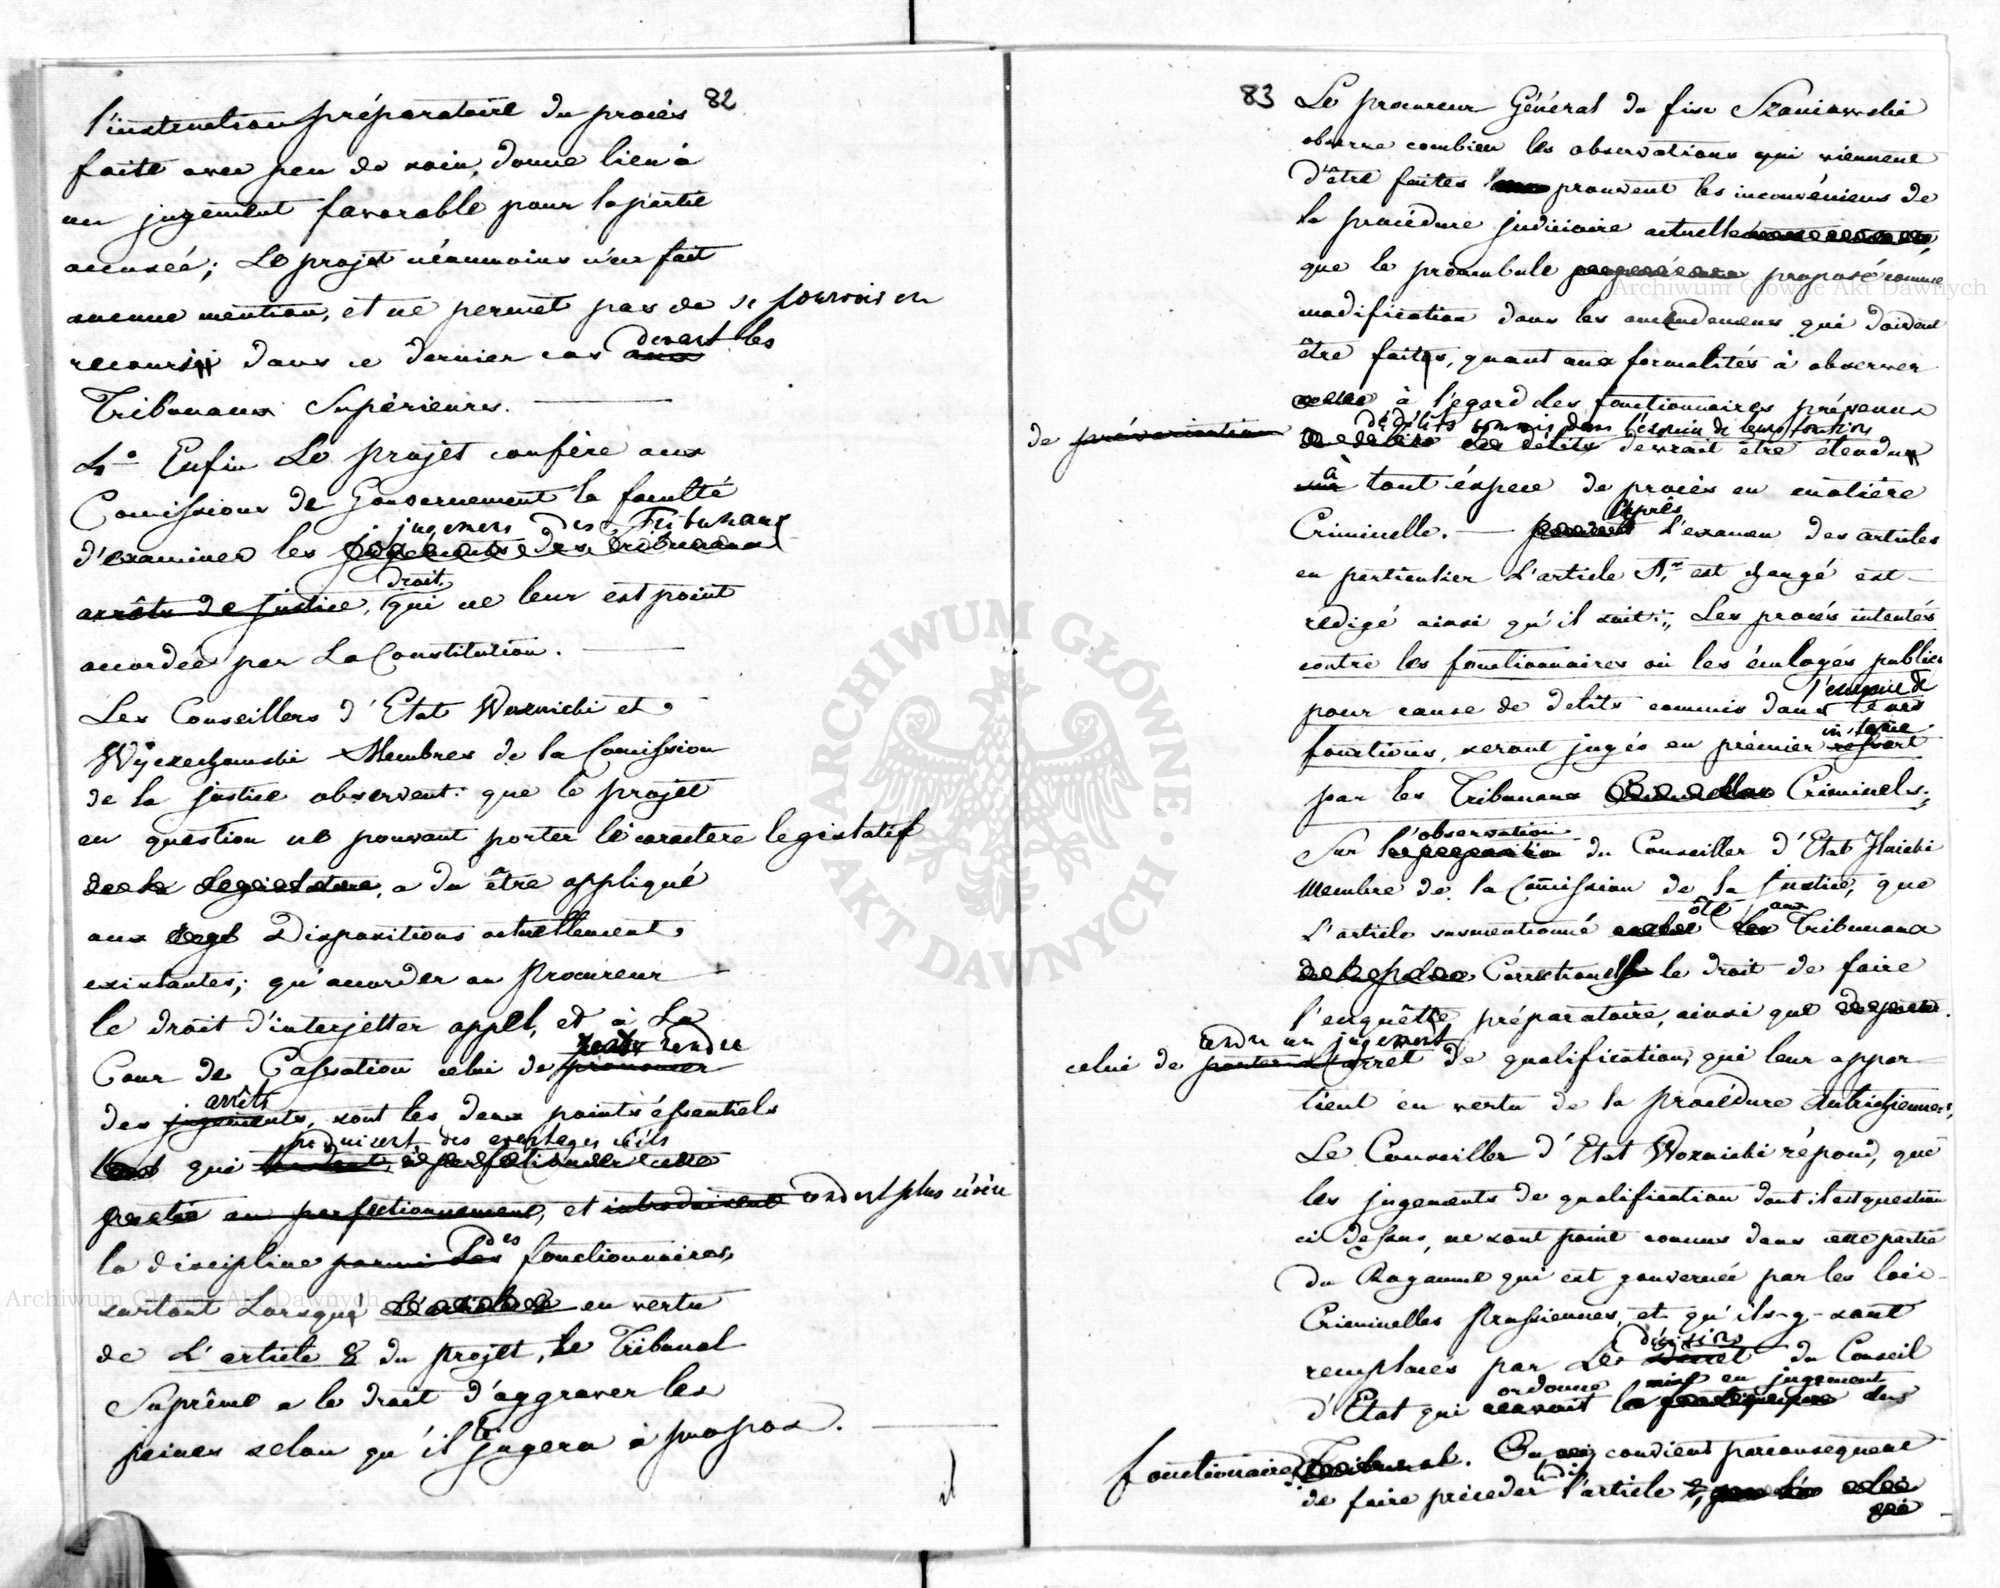 82
l'instruction préparatoire du procès
faite avec peu de soin, donne lieu à
un jugement favorable pour la partie
accusée; Le projet néanmoins n'en fait
aucune mention, et ne permet pas de se pourvoir en
recours dans ce dernier cas devant les
Tribunaux Supérieurs.
4.o Enfin Le projet confère aux
Comissions de Gouvernement la faculté
d'examiner les jugemens des Tribunaux
arrêts de justice, droit qui ne leur est point
accordée par La Constitution.
Les Conseillers d'Etat Woznicki et
Wyczechowski Membres de la Comission
de la justice observent que le projet
en question ne pouvant porter le caractère legislatif
de la Legislature, a du être appliqué
aux Dispositions actuellement
existantes; qu'accorder au Procureur
le droit d'interjetter appel, et à La
Cour de Cassation celui de prononcer rendre
des jugements arrêts, sont les deux points éssentiels
qui produisent des avantages réels
partie au perfectionnement, et introduisent rendent plus sévère
la discipline parmi Les des fonctionnaires,
surtout Lorsque en vertu
de L'article 8 du projet, le Tribunal
Suprême a le droit d'aggraver les
peines selon qu'il le jugera à propos.
il
83
Le procureur Général du fisc Szaniawski
observe combien les observations qui viennent
d'être faites prouvent les inconvéniens de
la procédure judiciaire actuelle
que le préambule proposé comme
modification dans les amendemens qui doivent
être faites, quant aux formalités à observer
à l'égard des fonctionnaires prévenus
de prévarication de délits commis dans l'exercice de leurs fonctions
des délits devrait être étendu
à tout éspece de procès en matière
Criminelle. — Après l'examen des articles
en particulier L'article 1.er est changé est
redigé ainsi qu'il suit: „Les procès intentés
contre les fonctionnaires où les émloyés publics
pour cause de delits commis dans l'exercice de leurs
fonctions, seront jugés en prémier ressort instance
par les Tribunaux Criminels.„
Sur l'observation du Conseiller d'Etat
Membre de la Comission de la Justice, que
L'article susmentionné ôte aux Tribunaux
de la police Correctionels le droit de faire
l'enquête préparatoire, ainsi que
celui de rendre un jugement porter L'arret de qualification, qui leur appar-
tient en vertu de la procédure Autrichienne,
Le Conseiller d'Etat Woznicki répond, que
les jugements de qualification dont il est question
ci dessus, ne sont point connus dans cette partie
du Royaume qui est gouvernée par les loix
Criminelles Prussiennes, et qu'ils-y-sont
remplacés par Les décision du Conseil
d'Etat qui ordonne la mise en jugement des
fonctionnaires. On convient parconsequent
de faire préceder l'article